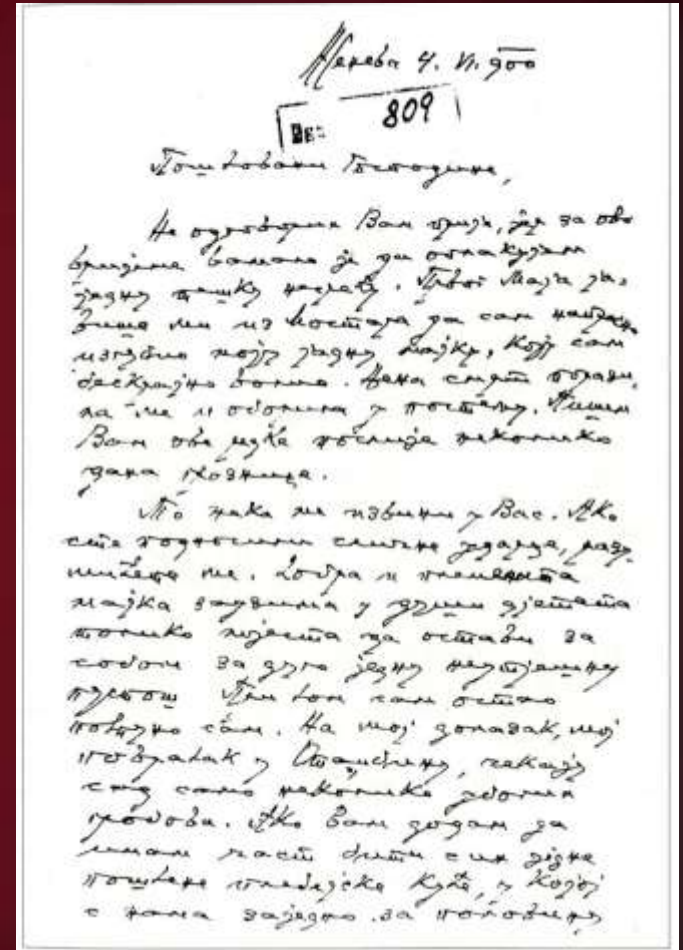 Женева 4. VI. 900
809
Поштовани Господине,
Не одговорих Вам прије, јер за ово
вријеме ваљало је да оплакујем
једну тешку несрећу. Првог Маја ја-
више ми из Мостара да сам
изгубио моју јадну мајку, коју сам
бескрајно волио. Њена смрт порази
ме и обори ме у постељу. Пишем
Вам ове ријечи послије неколико
дана грознице.
То нека ме извини у Вас. Ако
сте подносили сличне ударце, разу-
мићете ме. Добра и племенита
мајка заузима у души дјетета
толико мјеста да остави за
собом за дуго једну неутјешну
пустош. Тим сам остао
потпуно сам. На мој долазак, мој
повратак у Отаџбину, чекају
сад само неколико убогих
гробова. Ако Вам додам да
имам част бити син једне
поштене племијске куће, у којој
с нама заједно за половину